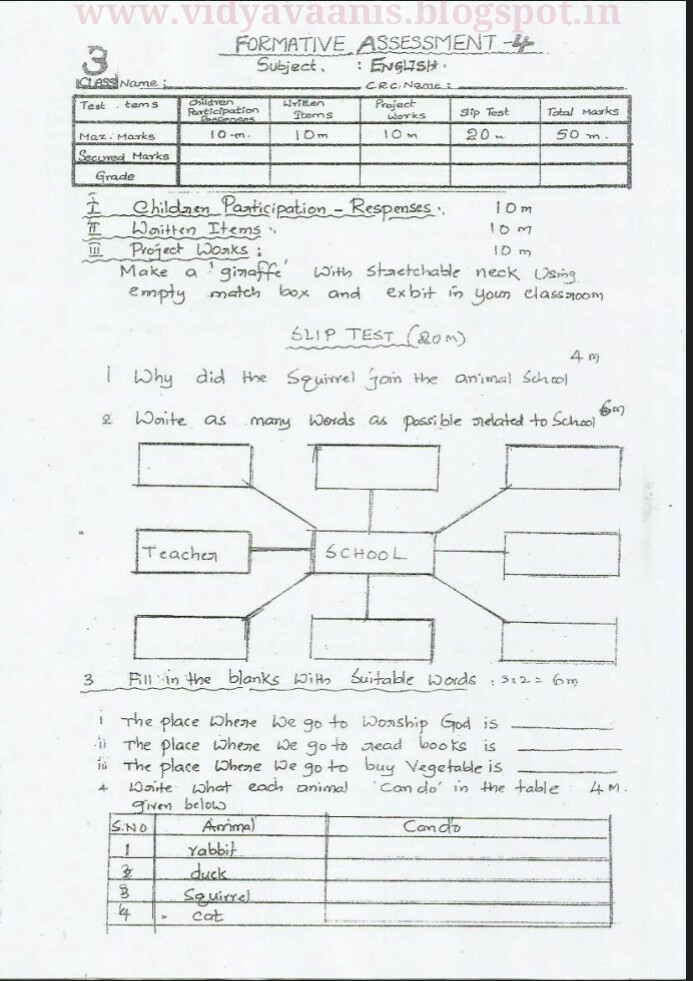 www.vidyavaanis.blogspot.in
FORMATIVE ASSESSMENT-4
3 Subject. : ENGLISH.
CLASS Name: C.R.C. Name:
Test items Children Participation Responses Written Items Project Works Slip Test Total Marks
Max. Marks 10 m. 10 m 10 m 20 m 50 m.
Secured Marks
Grade
I Children Participation - Respenses. 10 m
II Written Items. 10 m
III Project Works: 10 m
Make a 'giraffe' with stretchable neck using
empty match box and exbit in your classroom
SLIP TEST (20 m)
4 m
1 Why did the Squirrel join the animal School
2 Write as many words as possible related to School 6m
Teacher SCHOOL
3 Fill in the blanks with Suitable words : 3x2 = 6m
i The place where we go to worship God is
ii The place where we go to read books is
iii The place where we go to buy vegetable is
4 Write what each animal 'Can do' in the table 4 M.
given below
S.NO Animal Can do
1 rabbit
2 duck
3 Squirrel
4 cat